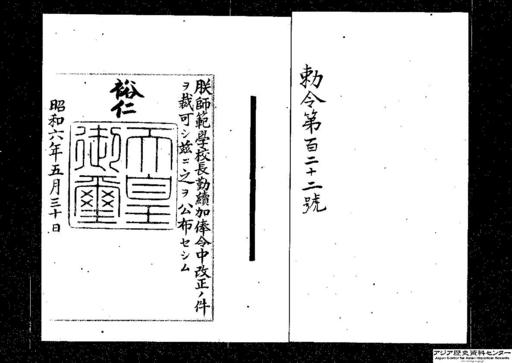 勅令第百二十二號
朕師範學校長勤續加俸令中改正ノ件
ヲ裁可シ茲ニ之ヲ公布セシム
裕仁
天皇
御璽
昭和六年五月三十日
アジア歴史資料センター
Japan Center for Asian Historical Records